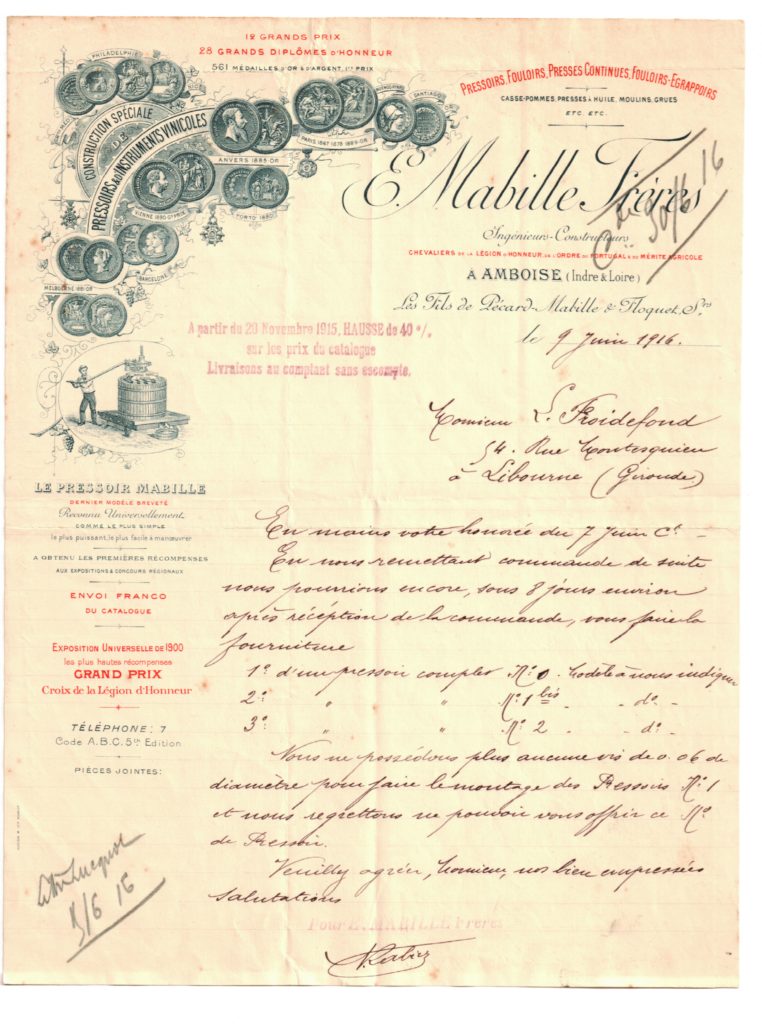 12 GRANDS PRIX
28 GRANDS DIPLÔMES D'HONNEUR
561 MÉDAILLES D'OR & D'ARGENT, 1ers PRIX
PHILADELPHIE
CONSTRUCTION SPÉCIALE
DE
PRESSOIRS & D'INSTRUMENTS VINICOLES
ANVERS 1885-OR
PARIS 1867 1878 1889-OR
SANTIAGO
VIENNE 1890-Gd PRIX
PORTO 1880
BARCELONE
MELBOURNE 1881-OR
PRESSOIRS, FOULOIRS, PRESSES CONTINUES, FOULOIRS-EGRAPPOIRS
CASSE-POMMES, PRESSES A HUILE, MOULINS, GRUES
ETC. ETC.
E. Mabille Frères
Ingénieurs-Constructeurs
CHEVALIERS DE LA LÉGION D'HONNEUR, DE L'ORDRE DU PORTUGAL & DU MÉRITE AGRICOLE
A AMBOISE (Indre & Loire)
Les Fils de Pécard-Mabille & Floquet, Srs
30/6 16
A partir du 20 Novembre 1915, HAUSSE de 40 %
sur les prix du catalogue
Livraisons au comptant sans escompte.
le 9 Juin 1916.
Monsieur L. Froidefond
54. Rue Montesquieu
à Libourne (Gironde)
LE PRESSOIR MABILLE
DERNIER MODÈLE BREVETÉ
Reconnu Universellement
COMME LE PLUS SIMPLE
le plus puissant, le plus facile à manœuvrer
A OBTENU LES PREMIÈRES RÉCOMPENSES
AUX EXPOSITIONS & CONCOURS RÉGIONAUX
ENVOI FRANCO
DU CATALOGUE
EXPOSITION UNIVERSELLE DE 1900
les plus hautes récompenses
GRAND PRIX
Croix de la Légion d'Honneur
TÉLÉPHONE: 7
Code A.B.C. 5th Edition
PIÈCES JOINTES:
En mains votre honorée du 7 Juin Ct -
En nous remettant commande de suite
nous pourrions encore, sous 8 jours environ
après réception de la commande, vous faire la
fourniture
1° d'un pressoir complet No 0. Modèle à nous indiquer
2° " " No 1 bis - do -
3° " " No 2 - do -
Nous ne possédons plus aucune vis de 0.06 de
diamètre pour faire le montage des Pressoirs No 1
et nous regrettons ne pouvoir vous offrir ce No
de Pressoir.
Veuillez agréer, Monsieur, nos bien empressées
Salutations
Pour E. MABILLE Frères
/6 16